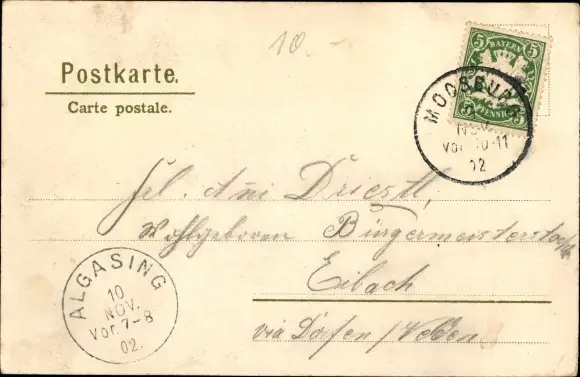 10.-
Postkarte.
Carte postale.
5 BAYERN 5
PFENNIG
MOOSBURG
NOV.
Vor. 10-11
02
Frl. Ani Driestl,
Wohlgeboren Bürgermeisterstochter
Eibach
via Dorfen /Velden
ALGASING
10
NOV.
Vor. 7-8
02.